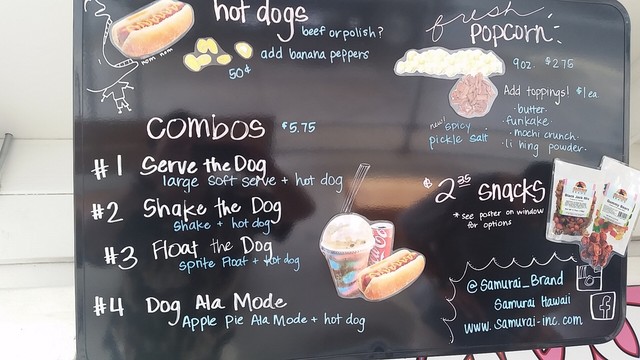 hot dogs
beef or polish?
nom nom
add banana peppers
50¢
fresh
POPCORN:
9oz. $2.75
Add toppings! $1 ea.
· butter·
· funkake·
· mochi crunch·
· li hing powder·
new! spicy
pickle salt
COMBOS $5.75
#1 Serve the Dog
large soft serve + hot dog
#2 Shake the Dog
shake + hot dog
#3 Float the Dog
sprite Float + hot dog
#4 Dog Ala Mode
Apple Pie Ala Mode + hot dog
$2.35 snacks
* see poster on window
for options
@Samurai_Brand
Samurai Hawaii
www.samurai-inc.com